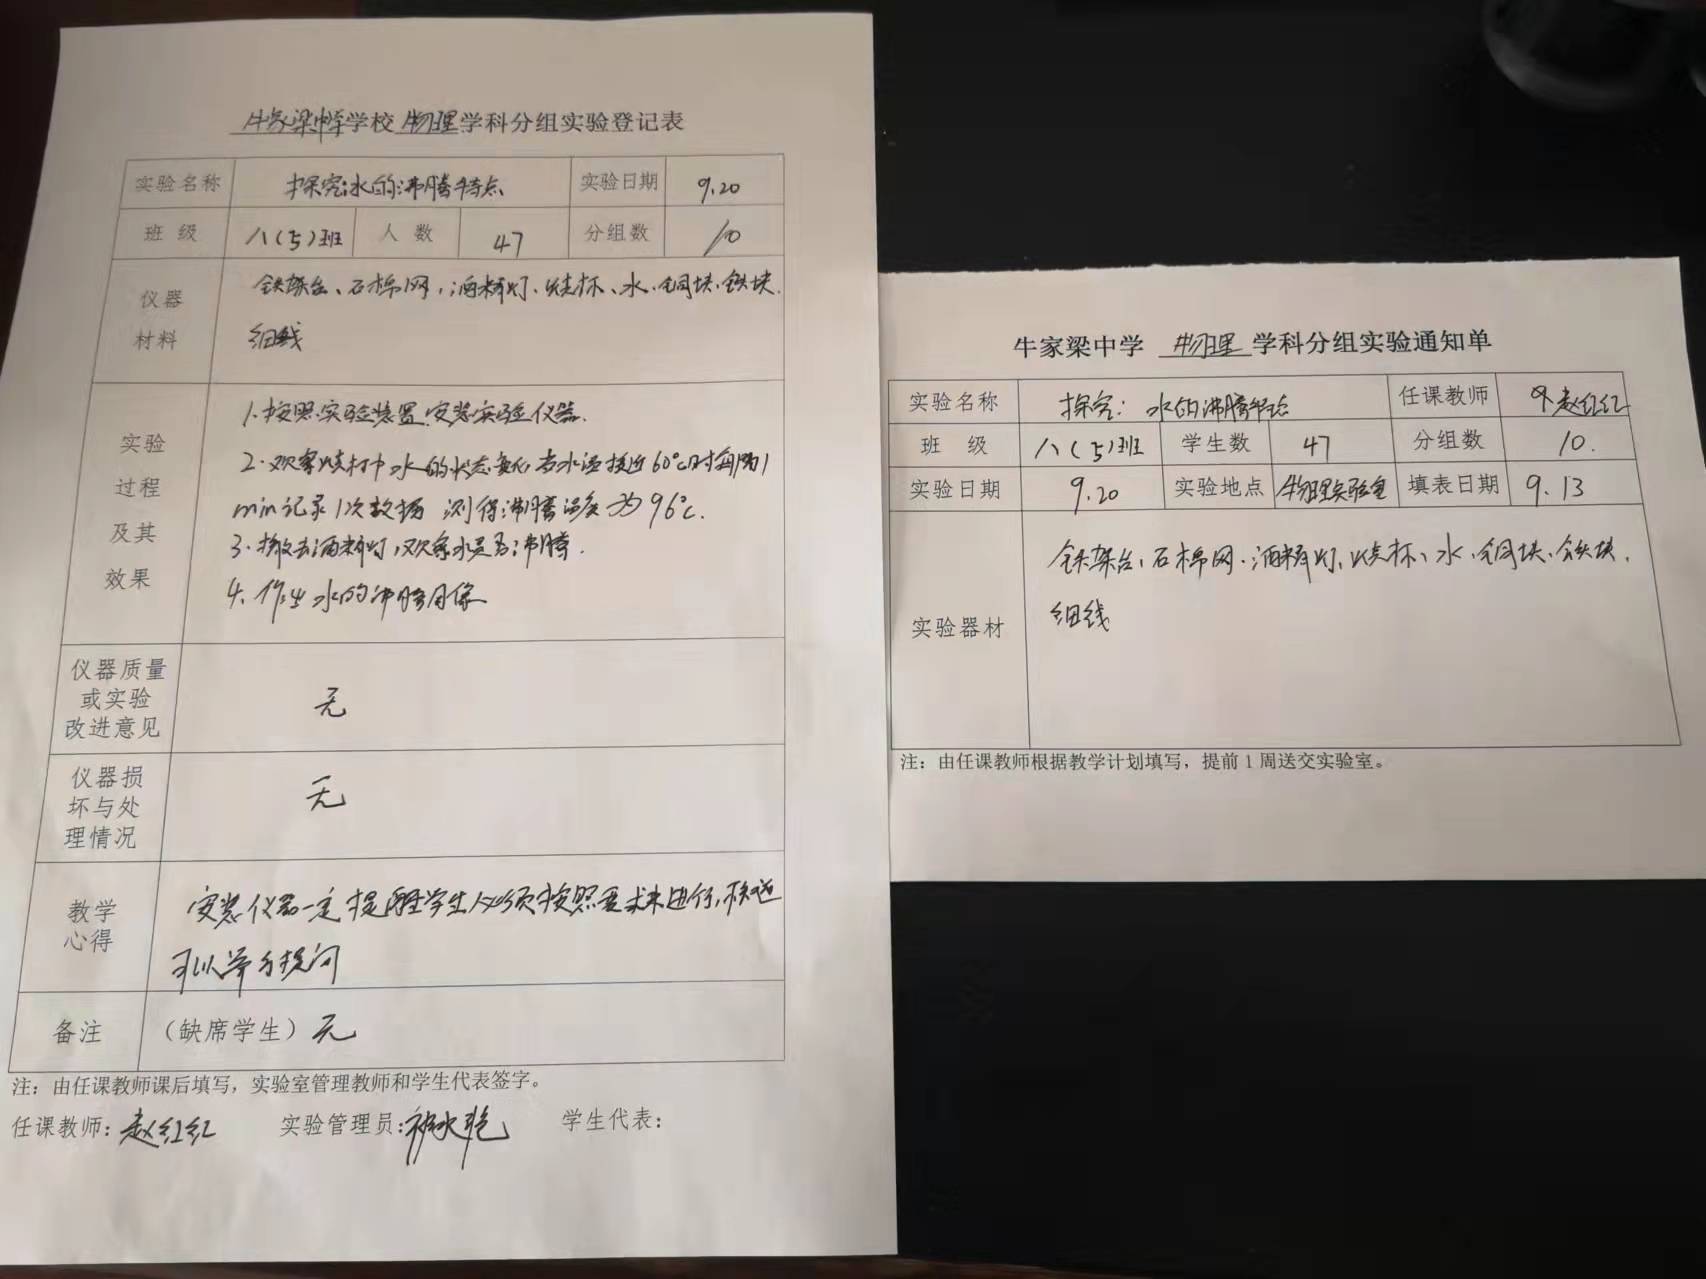 牛家梁中学学校物理学科分组实验登记表
实验名称 探究水的沸腾特点 实验日期 9.20
班 级 八(5)班 人 数 47 分组数 10
仪器 铁架台、石棉网、酒精灯、烧杯、水、铜块、铁块、
材料 细线
1.按照实验装置安装实验仪器.
实验 2.观察烧杯中水的状态变化当水温接近60℃时每隔1
过程 min记录1次数据 测得沸腾温度为96℃.
及其 3.撤去酒精灯,观察水是否沸腾.
效果 4.作出水的沸腾图像
仪器质量
或实验 无
改进意见
仪器损
坏与处 无
理情况
教学 安装仪器一定提醒学生必须按照要求来进行,
心得 可以举手提问
备注 (缺席学生) 无
注:由任课教师课后填写,实验室管理教师和学生代表签字。
任课教师:赵红红 实验管理员: 学生代表:
牛家梁中学 物理 学科分组实验通知单
实验名称 探究:水的沸腾 任课教师 赵红红
班 级 八(5)班 学生数 47 分组数 10.
实验日期 9.20 实验地点 物理实验室 填表日期 9.13
铁架台、石棉网、酒精灯、烧杯、水、铜块、铁块、
细线
实验器材
注:由任课教师根据教学计划填写,提前1周送交实验室。